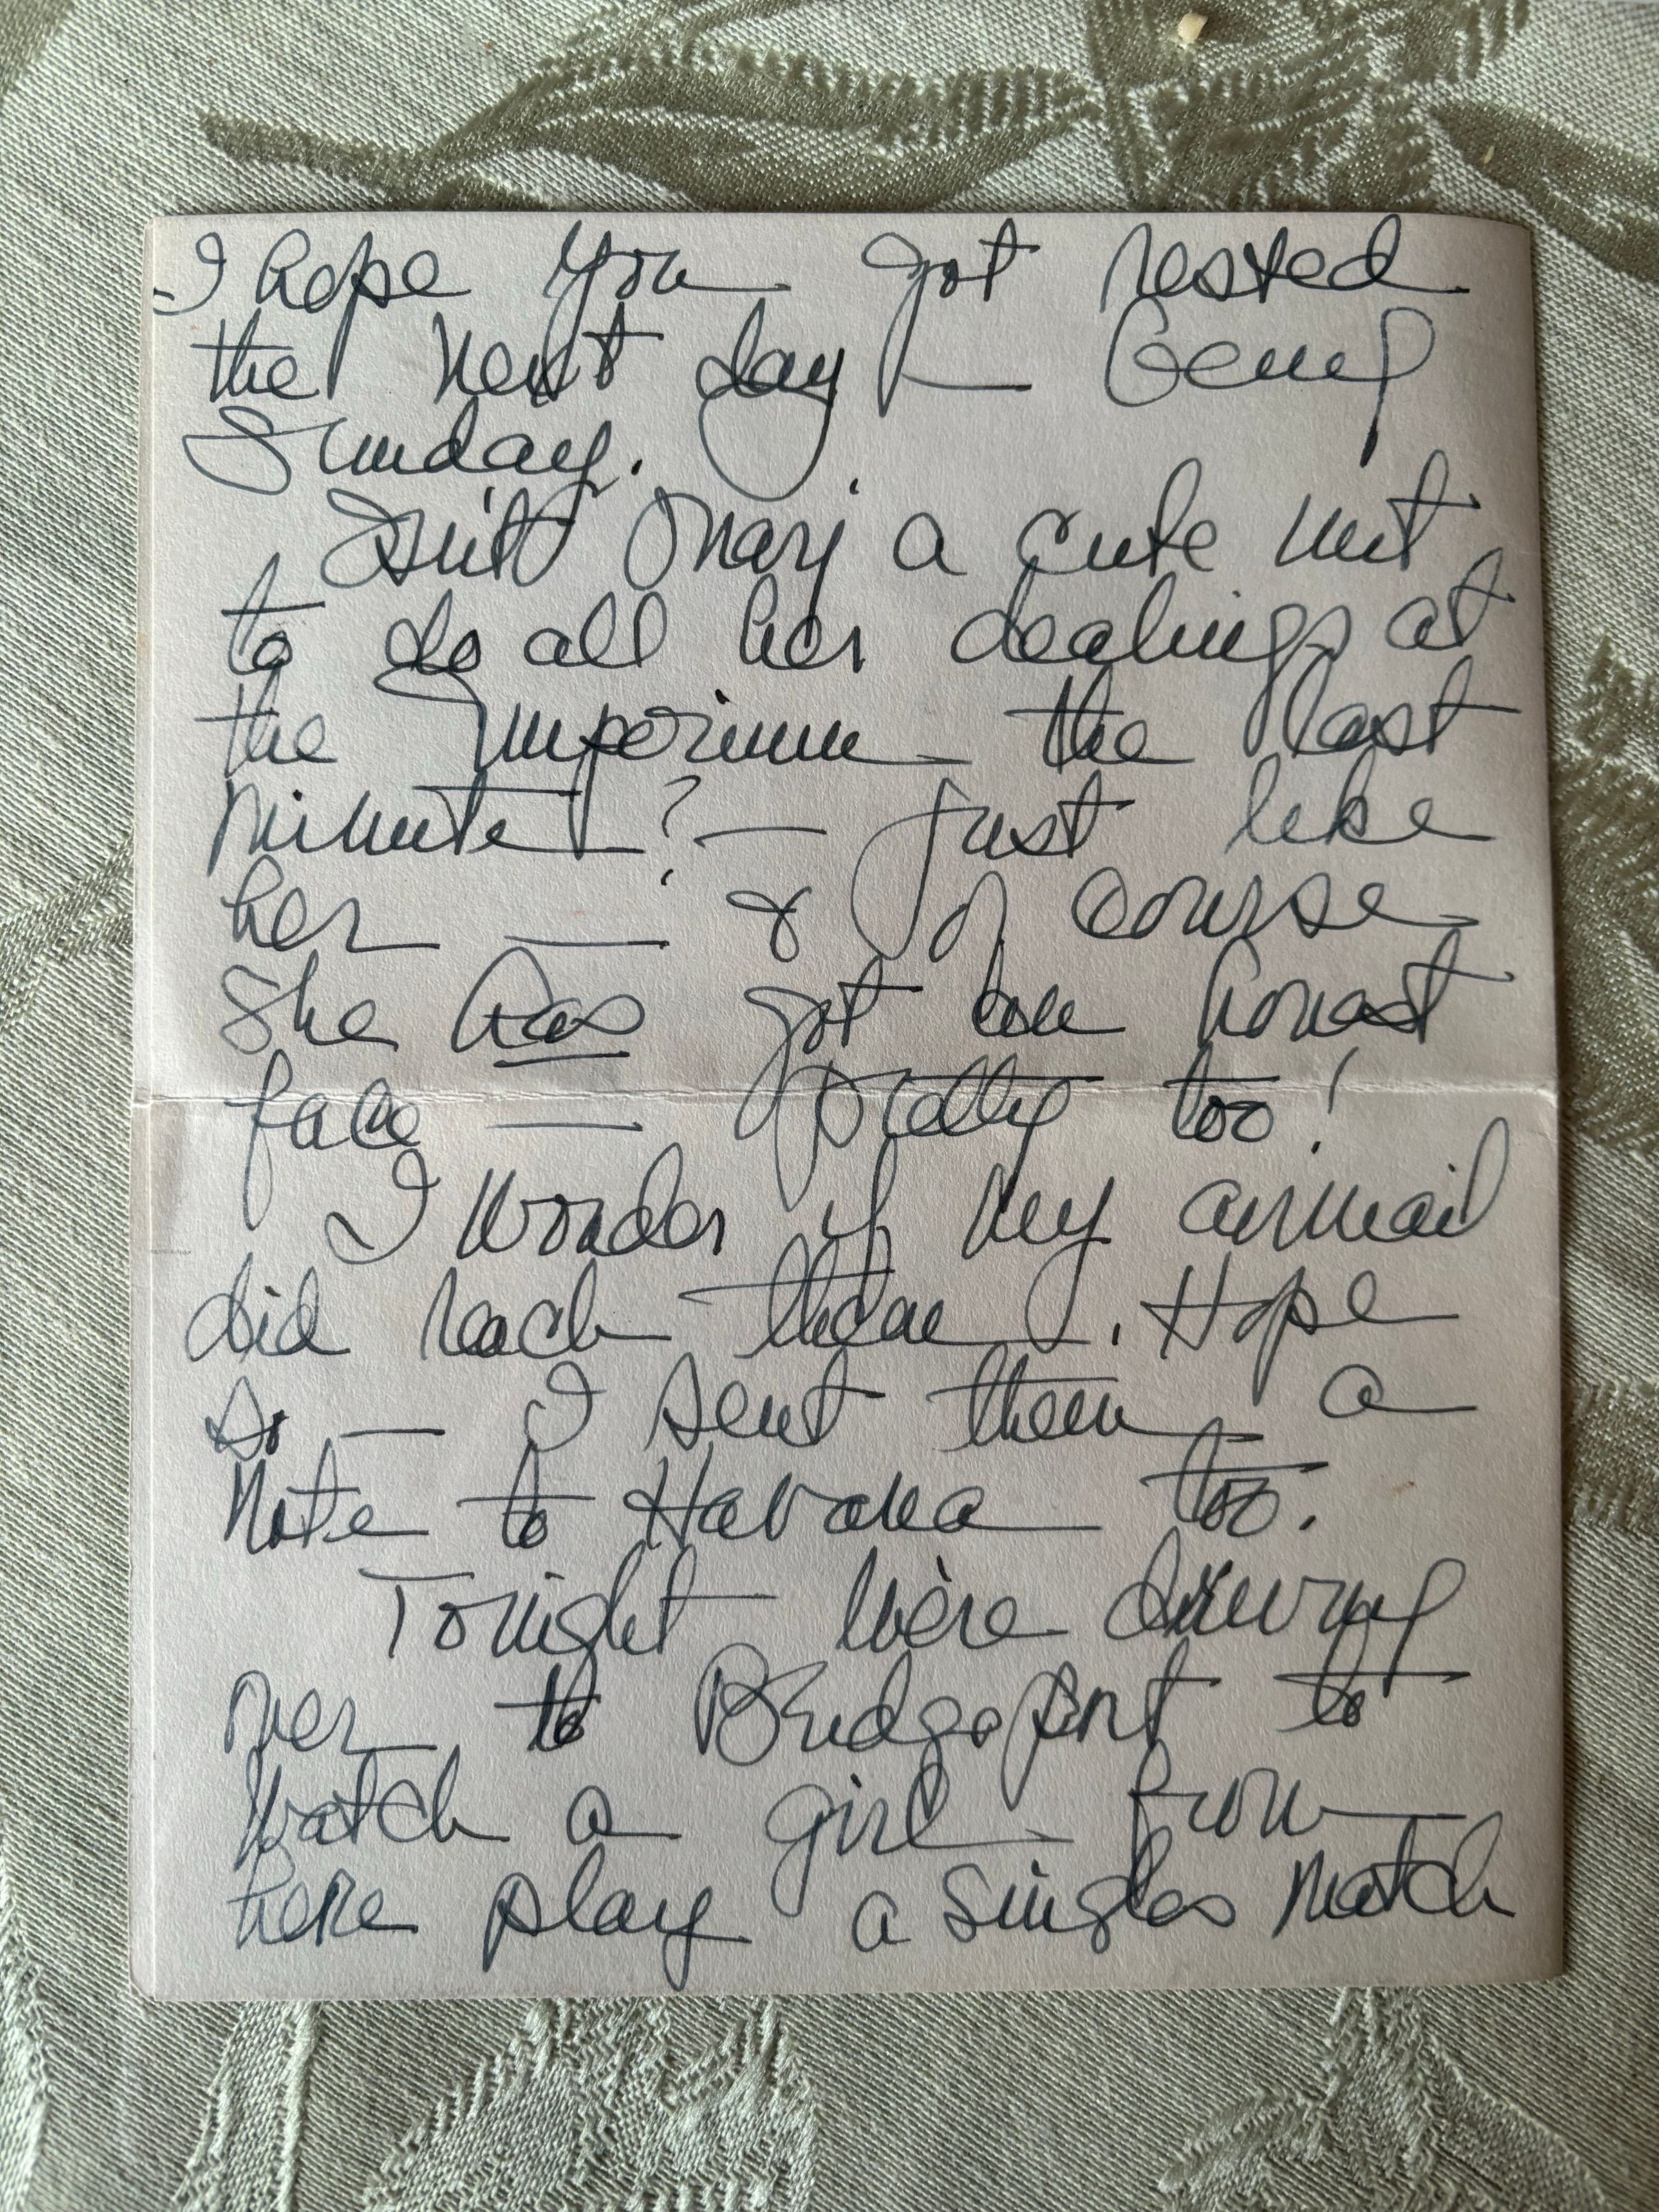 I hope you got rested
the next day — being
Sunday.
Isn't Mary a cute nut
to do all her dealings at
the Emporium the last
minute? — Just like
her — & of course
she has got an honest
face — pretty too!
I wonder if my airmail
did reach them. Hope
so — I sent them a
note to Havana too.
Tonight we're driving
over to Bridgeport to
watch a girl from
here play a singles match